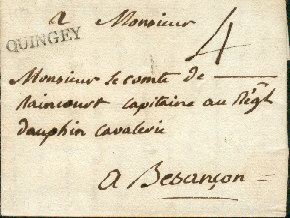 a Monsieur
QUINGEY
4
Monsieur le comte de
Raincourt capitaine au Regt
dauphin cavalerie
a Besançon =